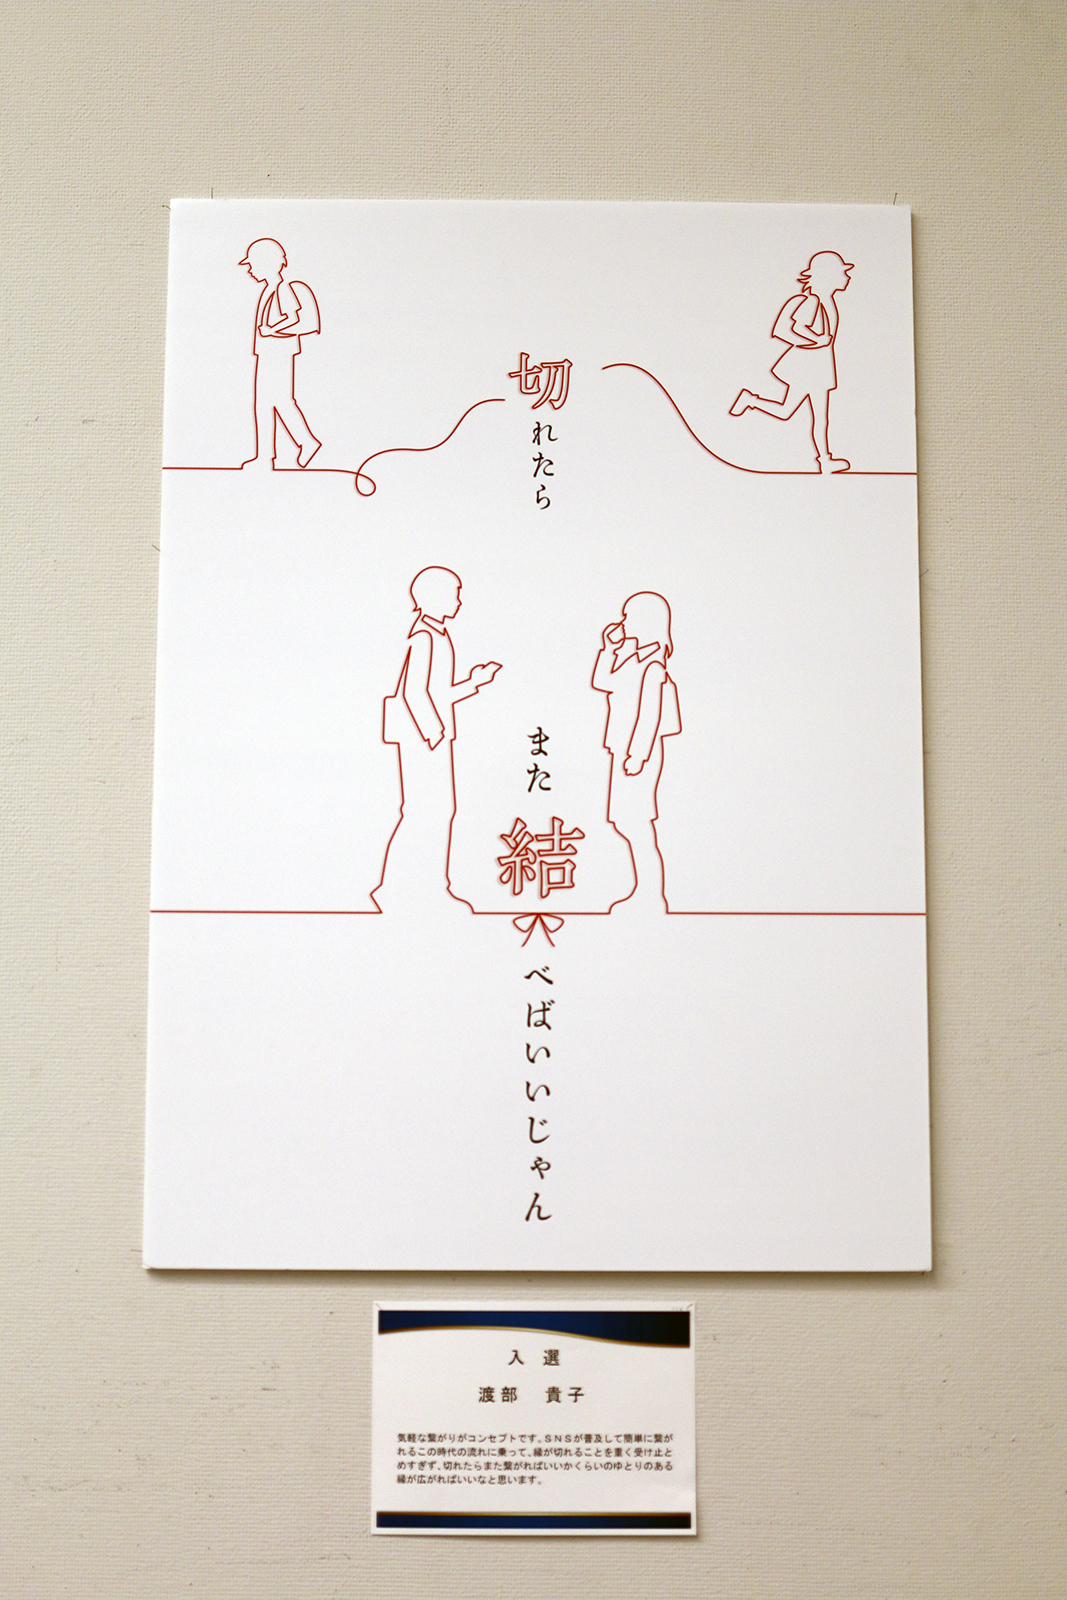 切れたら
また結べばいいじゃん
入選
渡部　貴子
気軽な繋がりがコンセプトです。SNSが普及して簡単に繋が
れるこの時代の流れに乗って、縁が切れることを重く受け止と
めすぎず、切れたらまた繋がればいいかくらいのゆとりのある
縁が広がればいいなと思います。